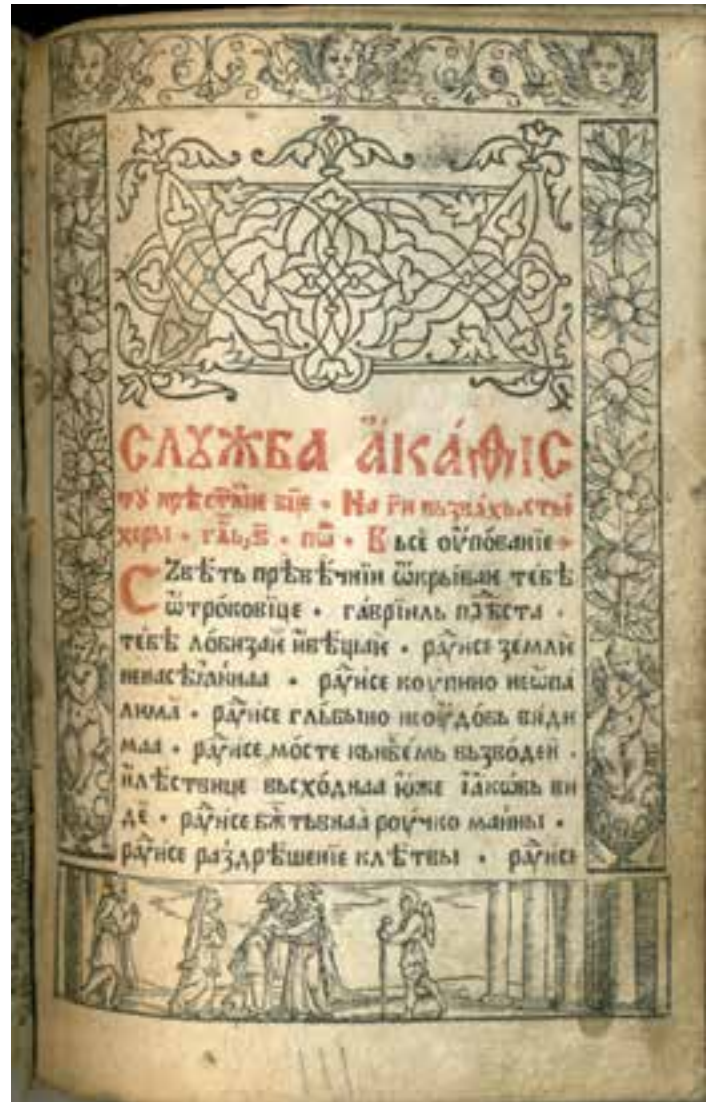 СЛꙊЖБА А҆КА́ѲІС
тꙋ прѣст҃ѣи бц҃е • На г҃и възва́хь, стьі
хєры • гла́, в҃ • по҃ • В ьсѐ оу҆пова́нїе
Сꙁвѣ́ть прѣвѣ́чнїи ѿкрыва́ѥ тєбѣ̀
ѿтрокови́цє • га́врїиль прѣ́ста •
тєбѣ̀ лобиза́ѥ и҆ вѣ́щаѥ • ра́ꙋисє зємлѝ
нєнасѣ́ꙗннаа • ра́ꙋисє коупино нєѡпа
ли́маа • ра́ꙋисє гльбыно нєоу҆до́бь види
маа • ра́ꙋисє, мо́стє кьнб҃ємь вьзводєи •
и҆ лѣ́ствицє вьсхо́днаа ю҆́жє і҆а́кѡвь ви
дѣ̀ • ра́ꙋисє бж҃тьвнаа роу́чко ма́нны •
ра́ꙋисє раздрѣшє́нїє клѣ́твы • ра́ꙋисє